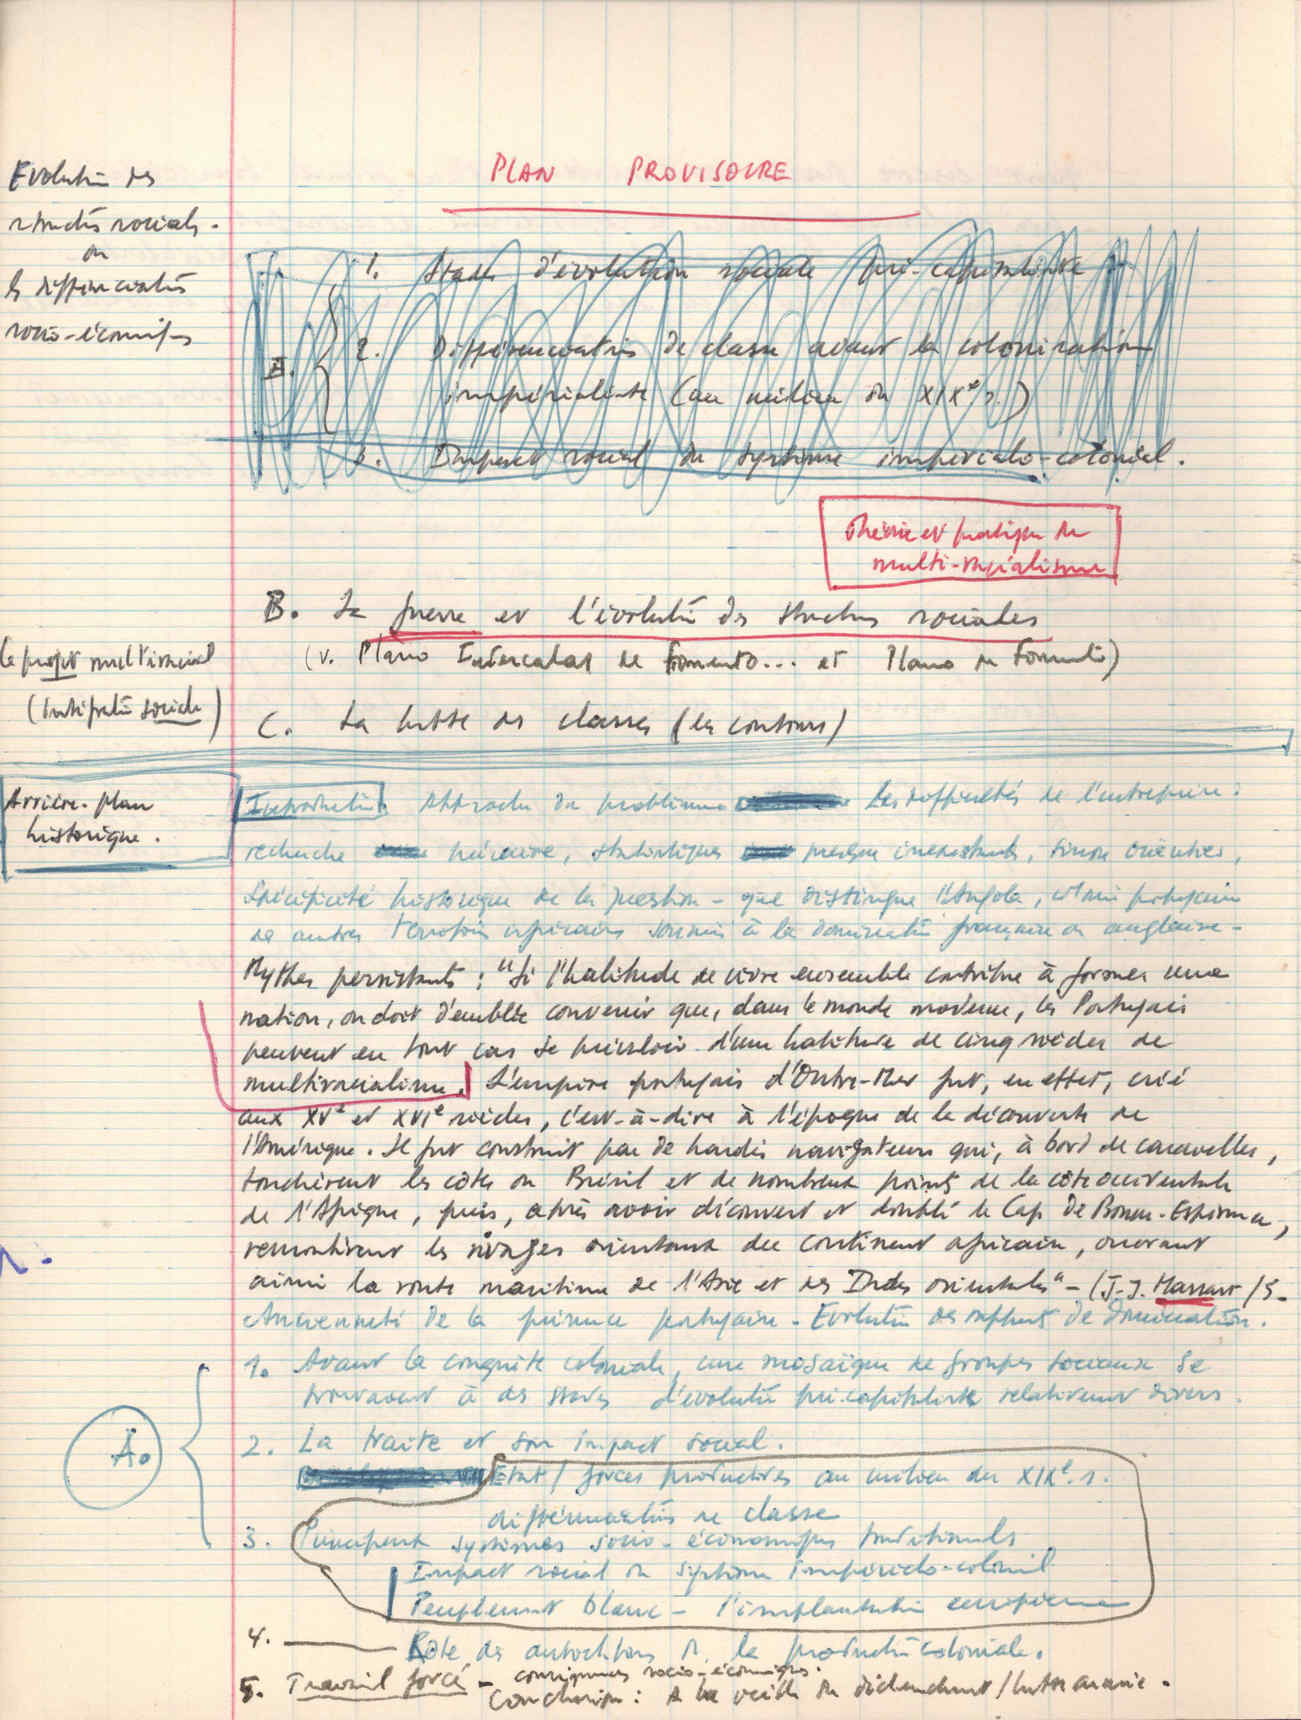 PLAN PROVISOIRE
Evolution des
structures sociales
ou
les différenciations
socio-économiques
1. Stades d'évolution sociale pré-capitaliste
2. Différenciations de classe avant la colonisation
impérialiste (au milieu du XIXe s.)
3. Impact social du système imperialo-colonial.
Théorie et pratique du
multi-racialisme
B. La guerre et l'évolution des structures sociales
(v. Plano Intercalar de Fomento... et Plano de Fomento)
Le projet multiracial
(Anticipation sociale)
C. La lutte des classes (les contours)
Arrière-plan
historique.
Introduction Approche du problème Les difficultés de l'entreprise:
recherche précaire, statistiques presque inexistantes, sinon orientées,
Spécificité historique de la question - que distingue l'Angola, colonie portugaise
de autres territoires africains soumis à la domination française ou anglaise -
Mythes persistants : "Si l'habitude de vivre ensemble contribue à former une
nation, on doit d'emblée convenir que, dans le monde moderne, les Portugais
peuvent en tout cas se prévaloir d'une habitude de cinq siècles de
multiracialisme. L'empire portugais d'Outre-Mer fut, en effet, créé
aux XVe et XVIe siècles, c'est-à-dire à l'époque de la découverte de
l'Amérique. Il fut construit par de hardis navigateurs qui, à bord de caravelles,
touchèrent les côtes du Brésil et de nombreux points de la côte occidentale
de l'Afrique, puis, après avoir découvert et doublé le Cap de Bonne-Espérance,
remontèrent les rivages orientaux du continent africain, ouvrant
ainsi la route maritime de l'Asie et des Indes orientales" - (J-J.
Ancienneté de la présence portugaise - Evolution des rapports de domination.
1. Avant la conquête coloniale, une mosaïque de groupes sociaux se
trouvaient à des stades d'évolution pré-capitaliste relativement divers.
A.
2. La traite et son impact social.
Etat / forces productives au milieu du XIXe s.
différenciations de classe
3. Principaux systèmes socio-économiques traditionnels
Impact social du système impérialo-colonial
Peuplement blanc - l'implantation européenne
4. Rôle des autochtones ds. la production coloniale.
5. Travail forcé - conséquences socio-économiques.
Conclusion : A la veille du déclenchement / lutte armée.